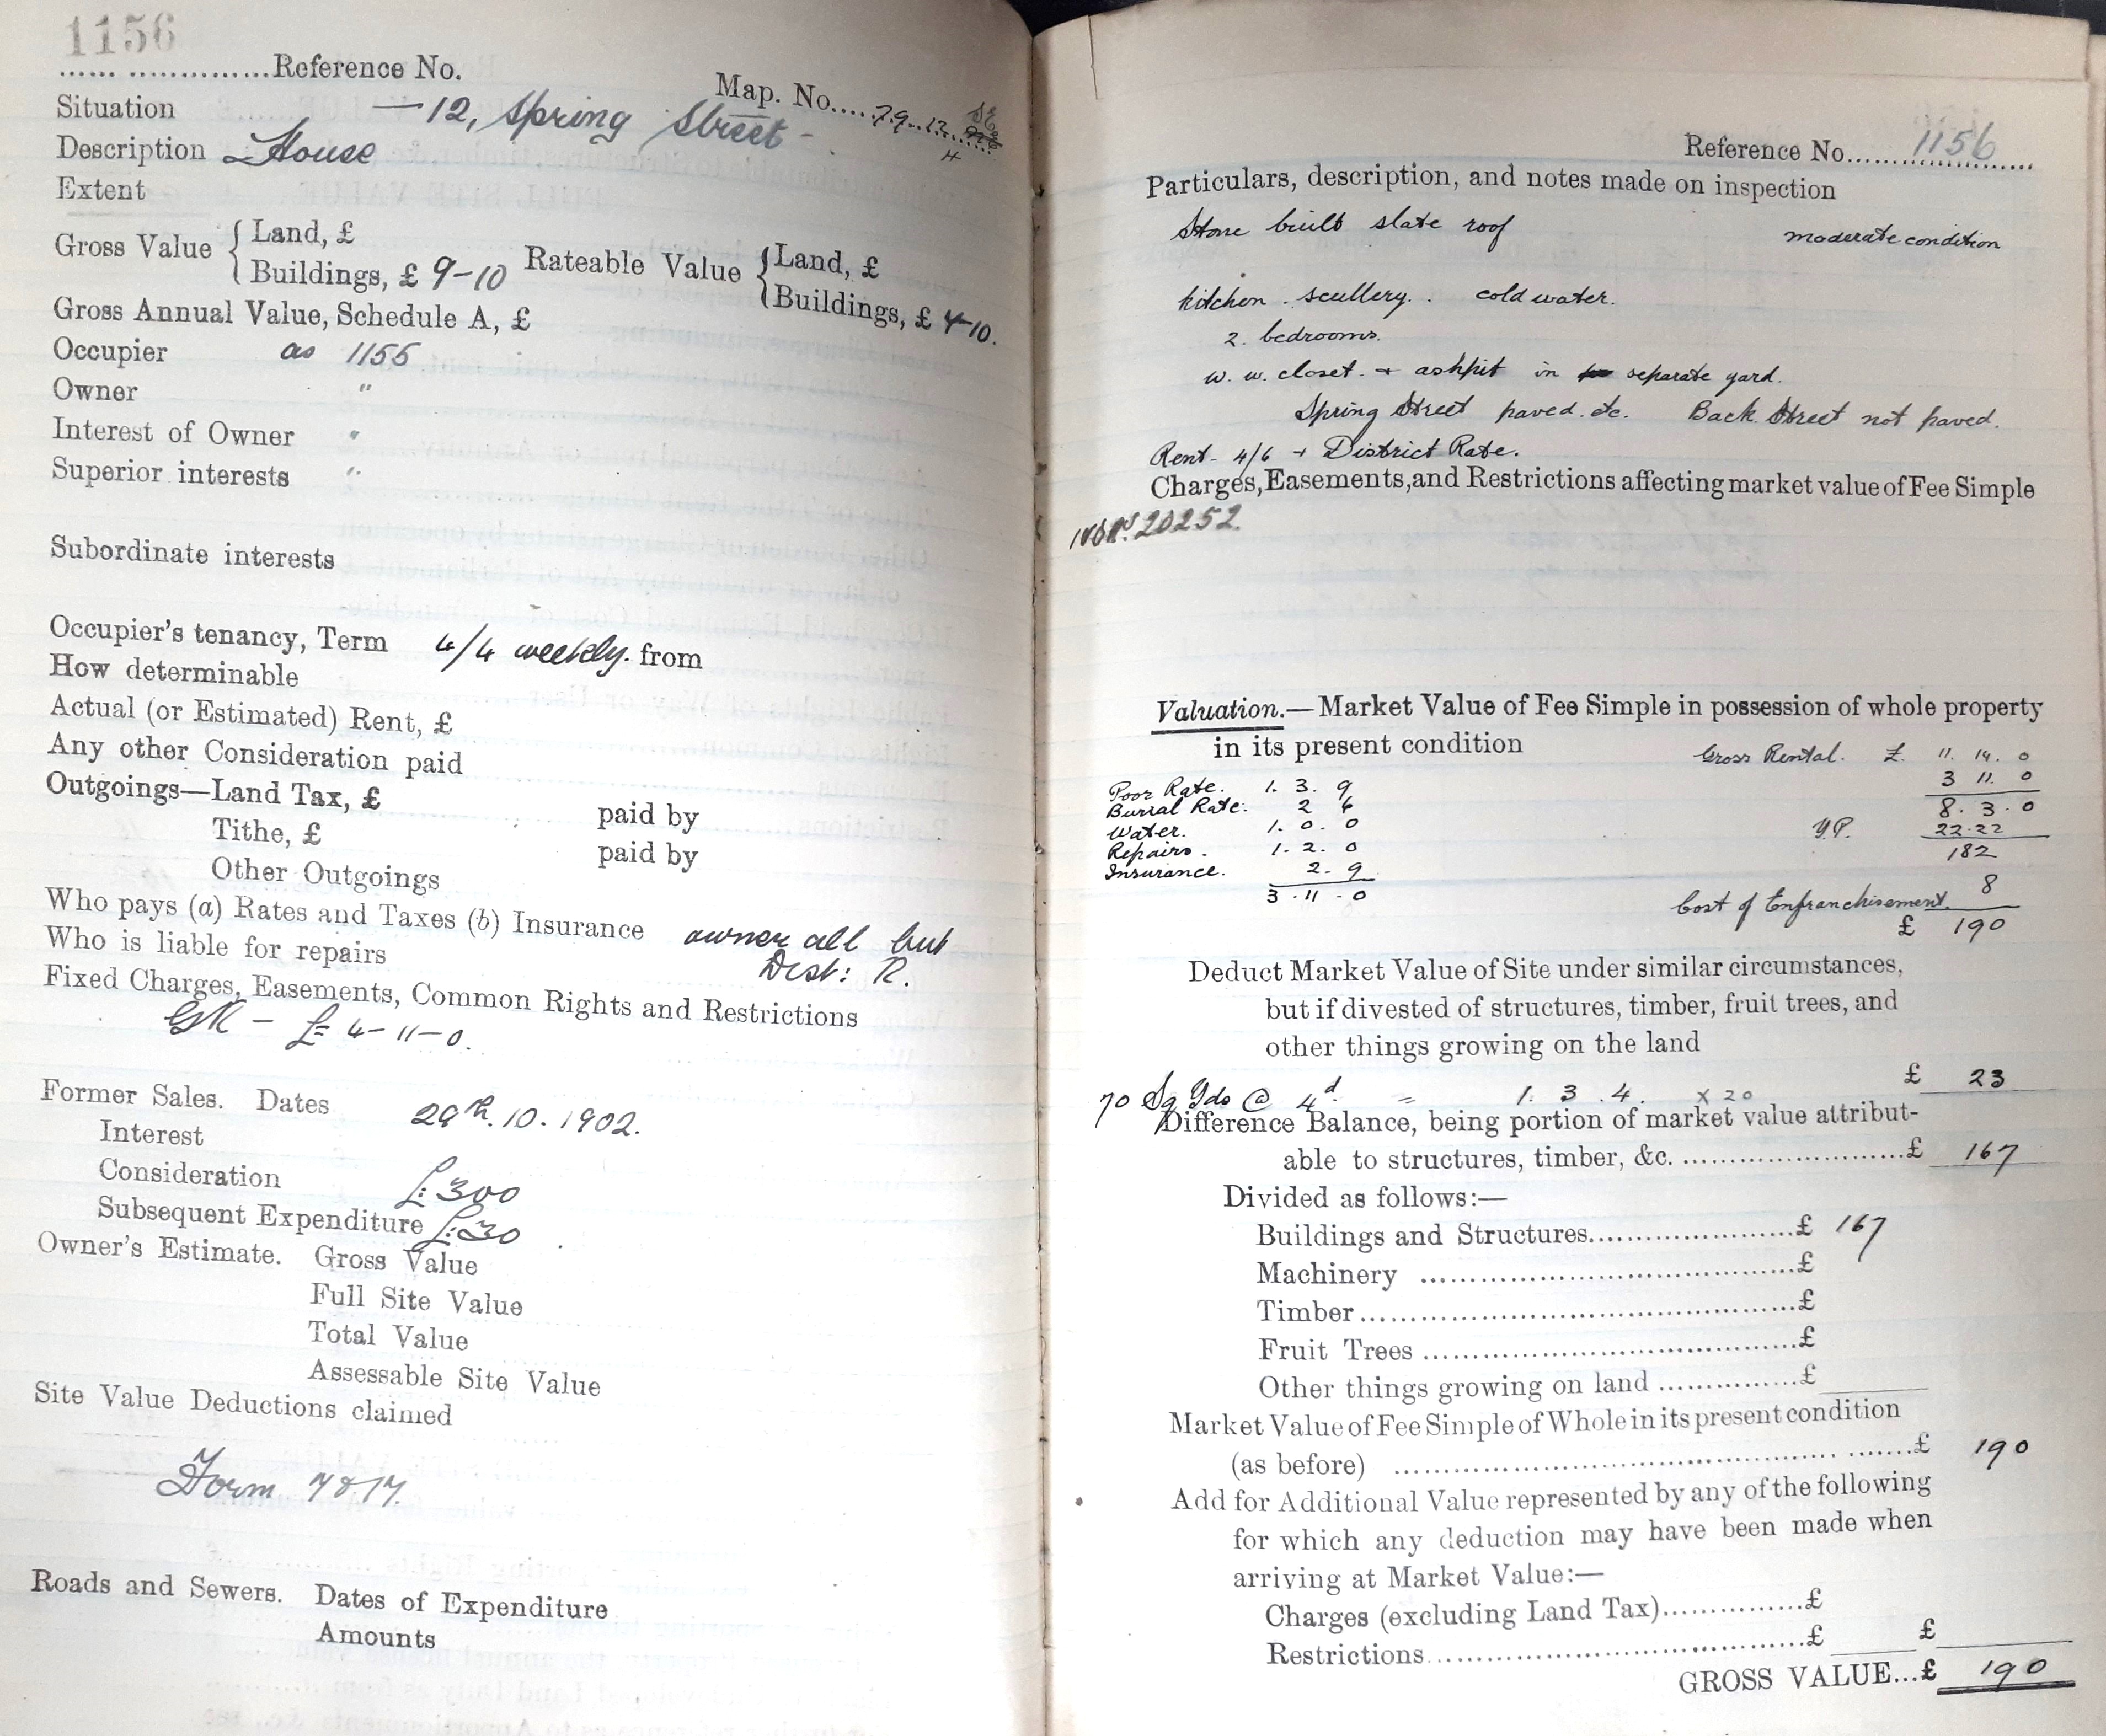 1156
...... ..............Reference No.
Map. No....79.12. SE
4
Situation — 12, Spring Street -
Description House
Extent
Gross Value { Land, £
Buildings, £ 9-10
Rateable Value { Land, £
Buildings, £ -10.
Gross Annual Value, Schedule A, £
Occupier as 1155
Owner "
Interest of Owner "
Superior interests "
Subordinate interests
Occupier's tenancy, Term 4/4 weekly. from
How determinable
Actual (or Estimated) Rent, £
Any other Consideration paid
Outgoings—Land Tax, £ paid by
Tithe, £ paid by
Other Outgoings
Who pays (a) Rates and Taxes (b) Insurance owner all but
Who is liable for repairs Dist: R.
Fixed Charges, Easements, Common Rights and Restrictions
GR - £ 4-11-0.
Former Sales. Dates 29th. 10. 1902.
Interest
Consideration £:300
Subsequent Expenditure £:30
Owner's Estimate. Gross Value
Full Site Value
Total Value
Assessable Site Value
Site Value Deductions claimed
Form 7817.
Roads and Sewers. Dates of Expenditure
Amounts
Reference No....1156
Particulars, description, and notes made on inspection
Stone built slate roof moderate condition
kitchen . scullery. . cold water.
2. bedrooms.
w. w. closet. + ashpit in separate yard.
Spring Street paved. etc. Back Street not paved.
Rent - 4/6 + District Rate.
Charges, Easements, and Restrictions affecting market value of Fee Simple
20252.
Valuation.— Market Value of Fee Simple in possession of whole property
in its present condition
Gross Rental. £ 11. 14. 0
3 11. 0
8. 3. 0
Y.P. 22.22
182
8
Cost of Enfranchisement.
£ 190
Poor Rate. 1. 3. 9
Burial Rate. 2 6
Water. 1. 0. 0
Repairs. 1. 2. 0
Insurance. 2. 9
3 . 11 . 0
Deduct Market Value of Site under similar circumstances,
but if divested of structures, timber, fruit trees, and
other things growing on the land
£ 23
70 Sq Yds @ 4d. = 1. 3. 4. x 20
Difference Balance, being portion of market value attribut-
able to structures, timber, &c. .........................£ 167
Divided as follows:—
Buildings and Structures.......................£ 167
Machinery .........................................£
Timber................................................£
Fruit Trees .........................................£
Other things growing on land ...............£
Market Value of Fee Simple of Whole in its present condition
(as before) ................................................ .......£ 190
Add for Additional Value represented by any of the following
for which any deduction may have been made when
arriving at Market Value:—
Charges (excluding Land Tax)...............£
Restrictions..........................................£ £
GROSS VALUE...£ 190